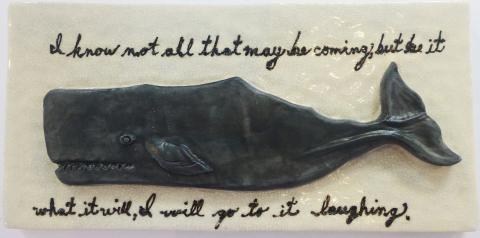 I know not all that may be coming, but be it
what it will, I will go to it laughing.